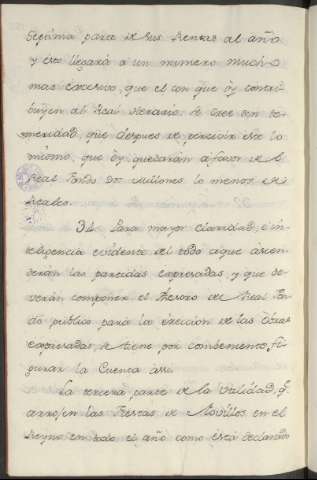 Septima parte de sus Rentas al año
y esto llegará à un numero mucho
mas excesivo, que el con que oy contri
buyen al Real Herario, se cree con te
meridad, que despues de percivir este lo
mismo, que oy quedarán à favor de el
Real Fondo dos millones lo menos de
Reales.
34. Para mayor claridad, è in
teligencia evidente del todo aque ascen
derán las partidas expresadas, y que de
verán componer el Thesoro de Real Fon
do publico para la execucion de las Obras
expresadas, se tiene por combeniente, fi
gurar la Cuenta assi.
La tercera parte de la Utilidad, q.
arrojen las Fiestas de Novillos en el
Reyno en todo el año como está declarado